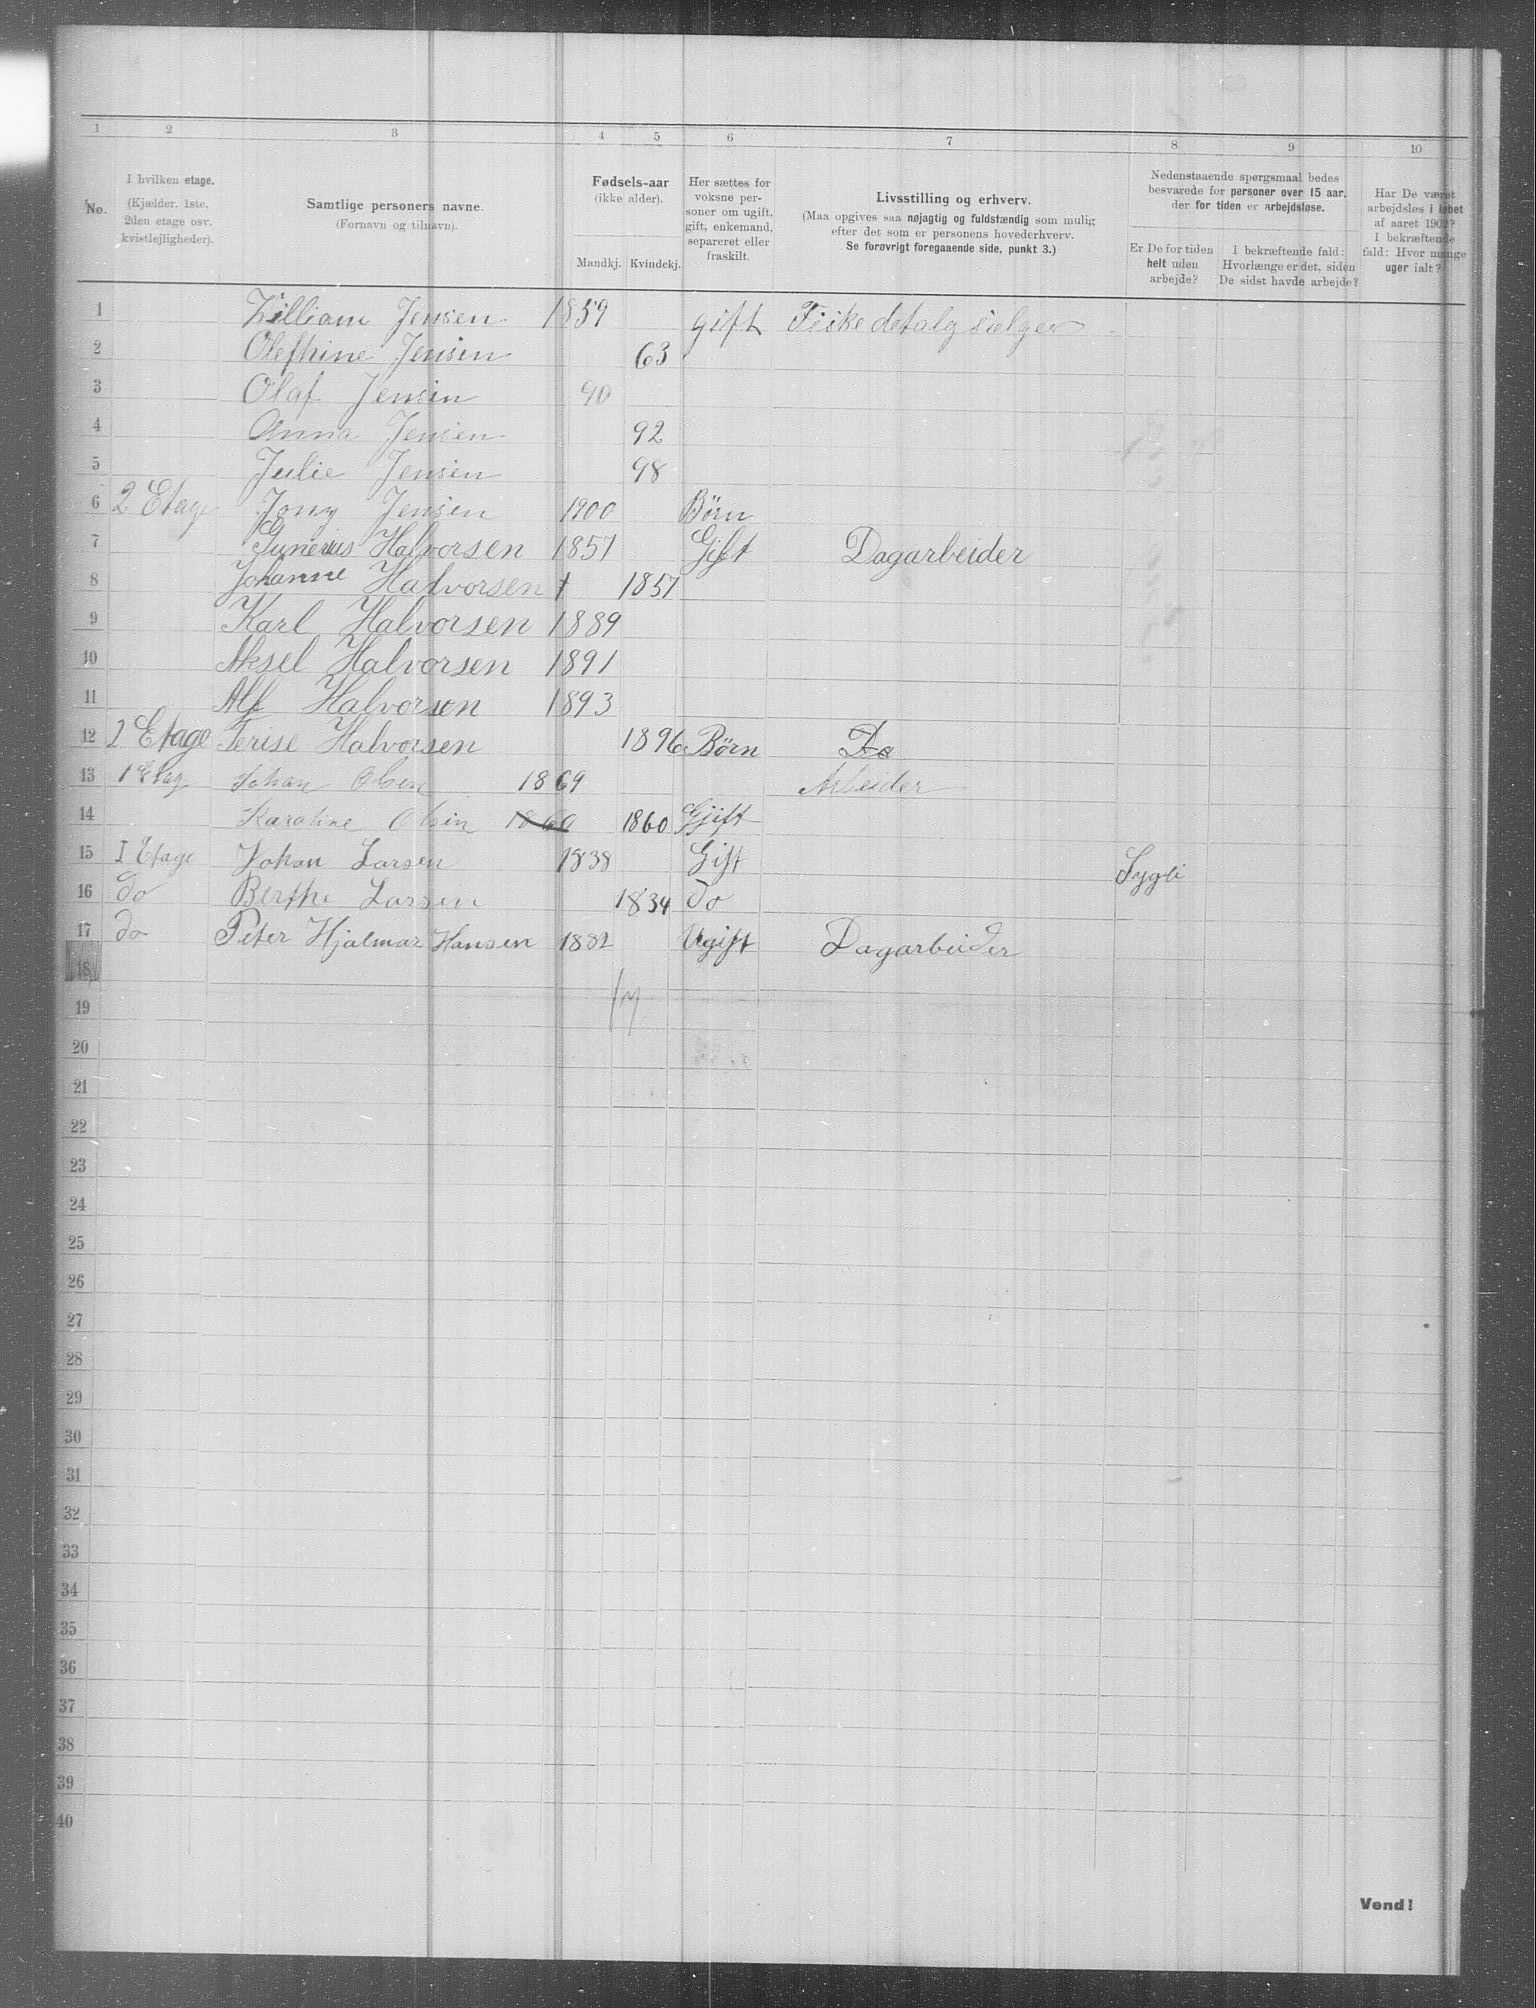 1 2 3 4 5 6 7 8 9 10
No.
I hvilken etage.
(Kjælder, 1ste,
2den etage osv.
kvistlejligheder).
Samtlige personers navne.
(Fornavn og tilnavn).
Fødsels-aar
(ikke alder).
Mandkj. Kvindekj.
Her sættes for
voksne per-
soner om ugift,
gift, enkemand,
separeret eller
fraskilt.
Livsstilling og erhverv.
(Maa opgives saa nøjagtig og fuldstændig som mulig
efter det som er personens hovederhverv.
Se forøvrigt foregaaende side, punkt 3.)
Nedenstaaende spørgsmaal bedes
besvarede for personer over 15 aar.
der for tiden er arbejdsløse.
Er De for tiden
helt uden
arbejde?
I bekræftende fald:
Hvorlænge er det, siden
De sidst havde arbejde?
Har De været
arbejdsløs i løbet
af aaret 1902?
I bekræftende
fald: Hvor mange
uger ialt?
1 William Jensen 1859 gift Fiske detalg sælger
2 Olefhine Jensen 63
3 Olaf Jensen 90
4 Anna Jensen 92
5 Julie Jensen 98
6 2 Etage Jony Jensen 1900 Børn
7 Gunerius Halvorsen 1857 Gift Dagarbeider
8 Johanne Halvorsen 1857
9 Karl Halvorsen 1889
10 Aksel Halvorsen 1891
11 Alf Halvorsen 1893
12 2 Etage Terise Halvorsen 1896 Børn Do
13 1 Etag Johan Olsen 1869 Arbeider
14 Karoline Olsin 1860 1860 Gjift
15 I Etage Johan Larsen 1838 Gift Sygli
16 do Berthe Larsen 1834 do
17 do Peter Hjalmar Hansen 1882 Ugift Dagarbeider
18
19
20
21
22
23
24
25
26
27
28
29
30
31
32
33
34
35
36
37
38
39
40
Vend!